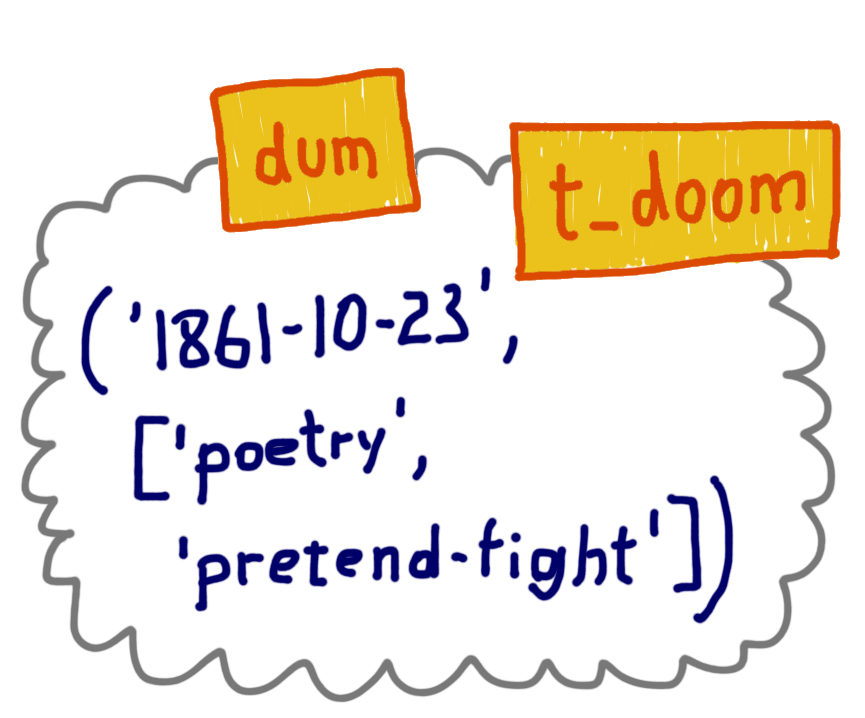 dum
t_doom
('1861-10-23',
['poetry',
'pretend-fight'])